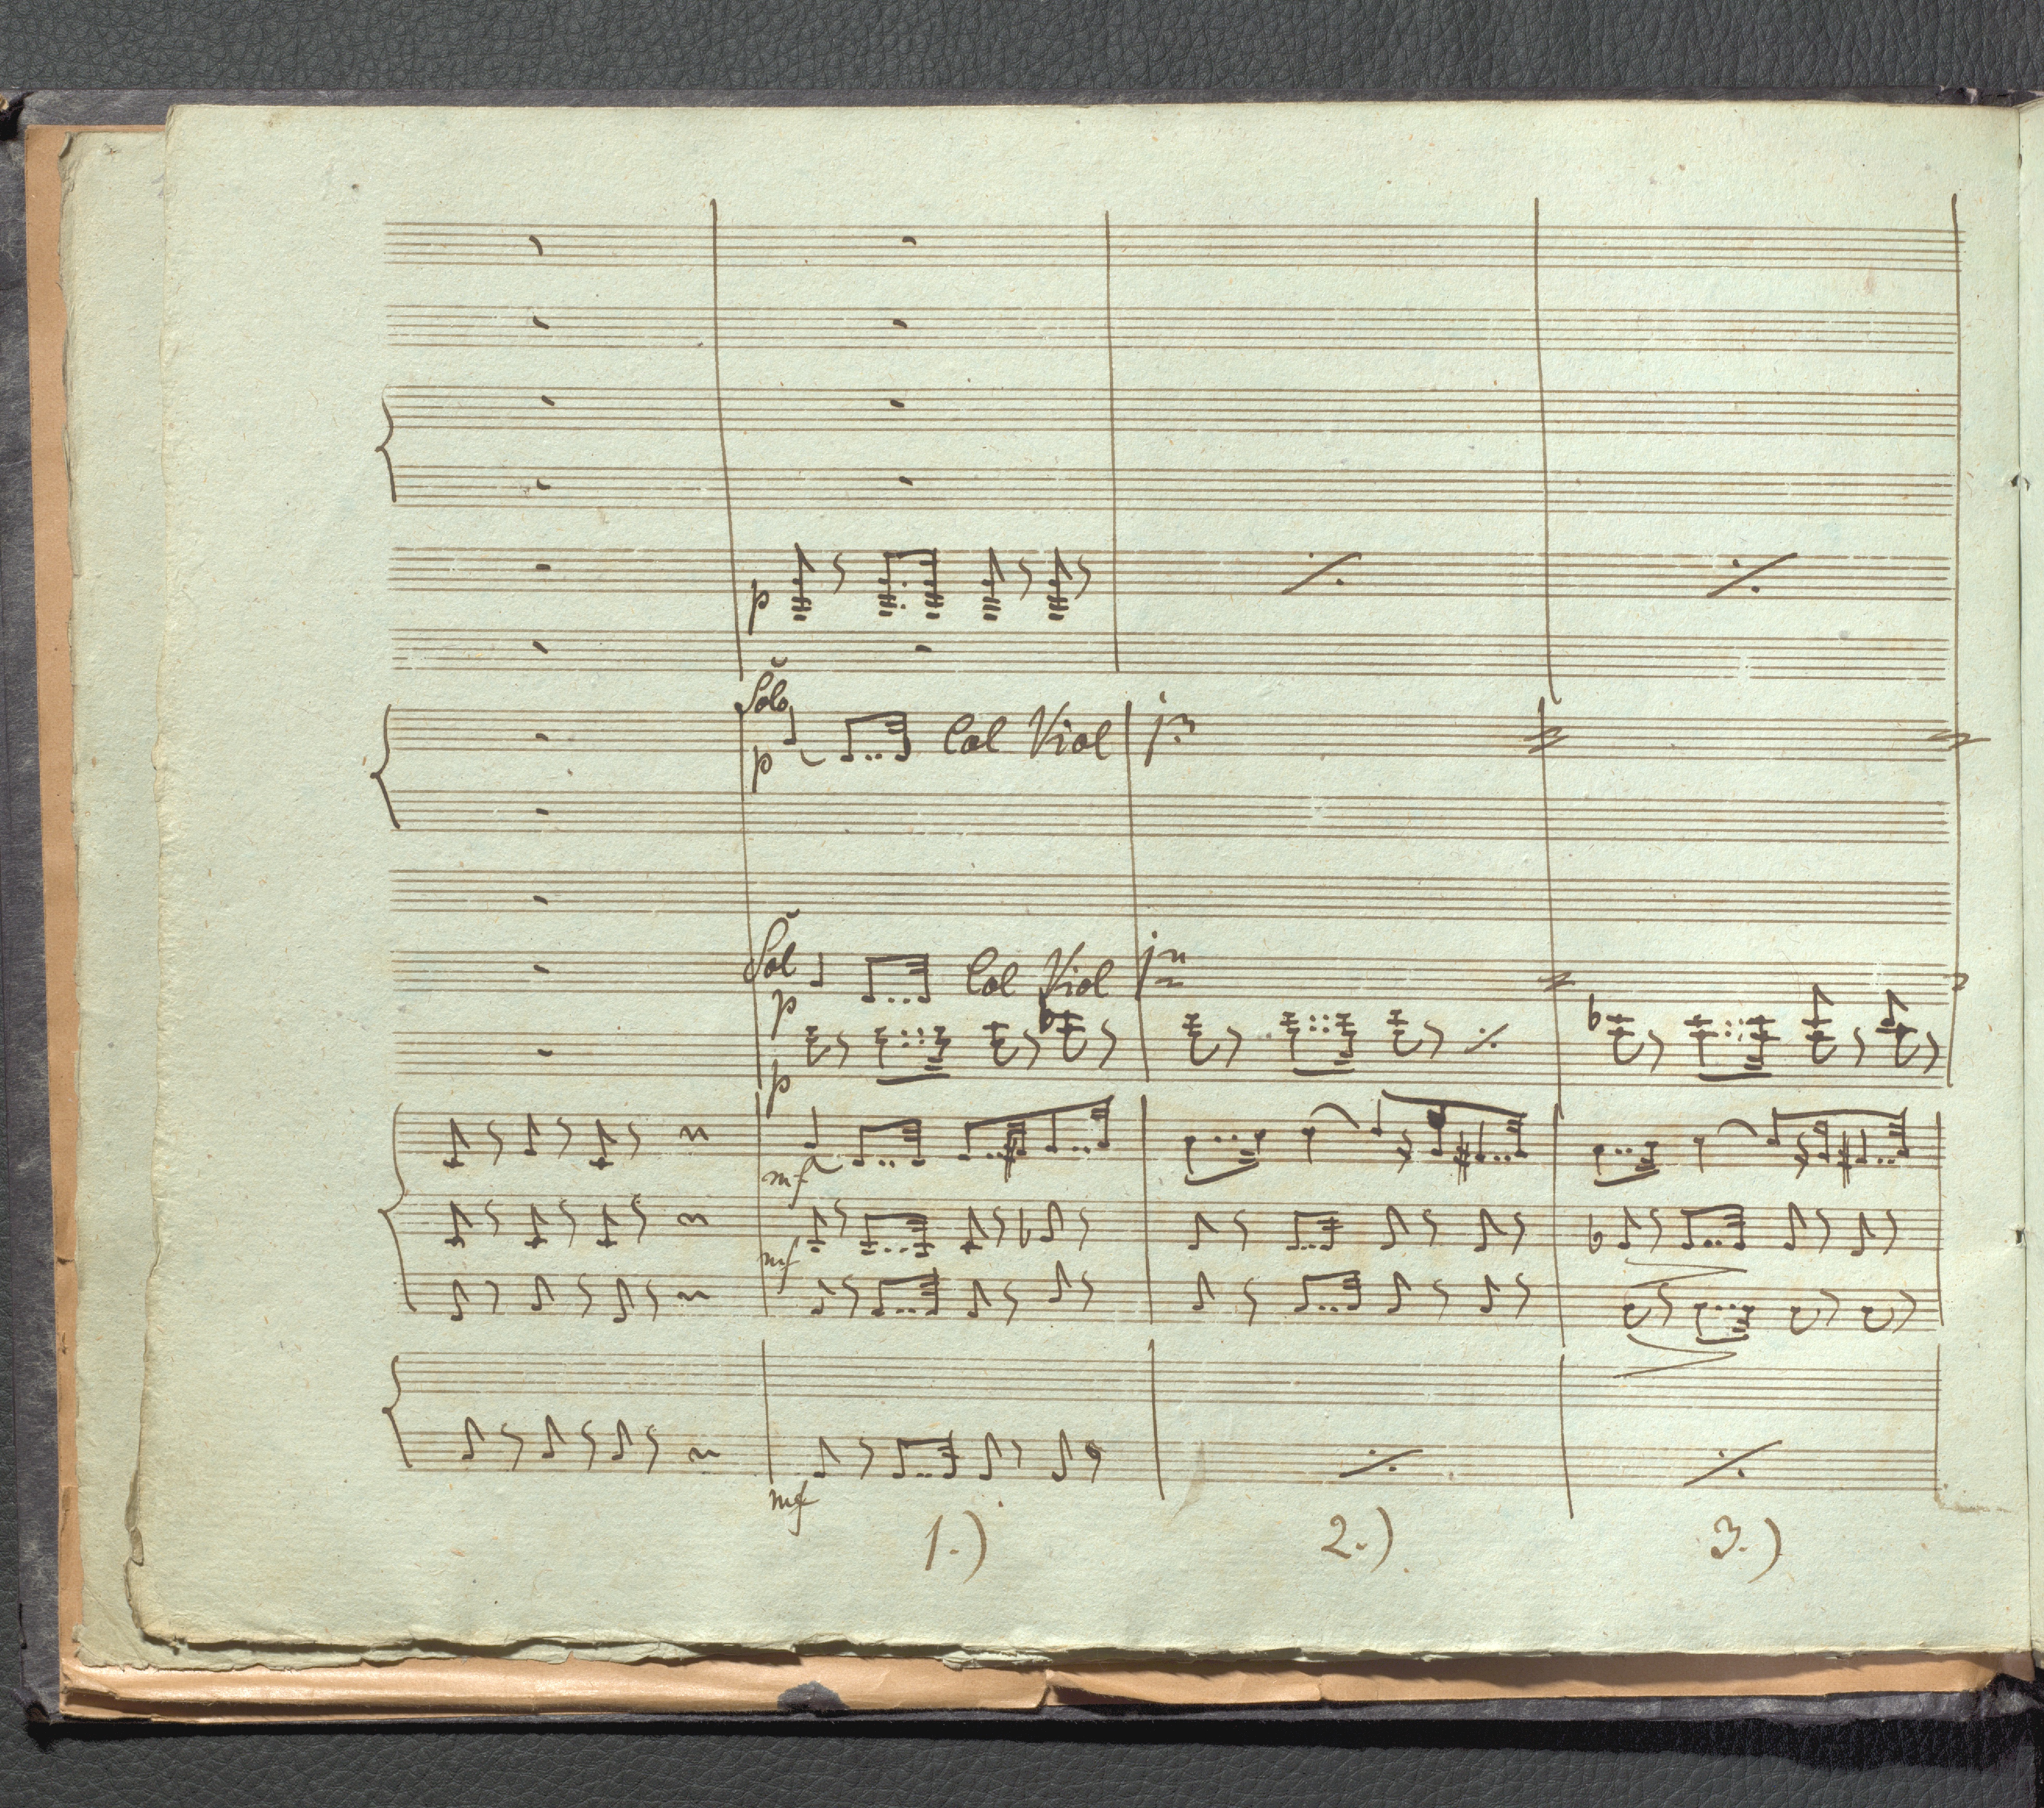 p
Solo
p Col Viol 1mo
Sol
p Col Viol 1mo
p
mf
mf
mf
1.) 2.) 3.)